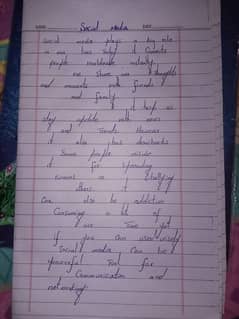 Social media
Social media plays a big role
in our lives today it connects
people worldwide instantly
we share our thoughts
and moments with friends
and family
it helps us
stay update with news
and trends However
it also has drawbacks
Some people misuse
it for spreading
rumors or bullying
Others it
Can also be addictive
Consuming a lot of
our Time yet
if you use wisely
Social media Can be a
powerful Tool for
Communication and
networking